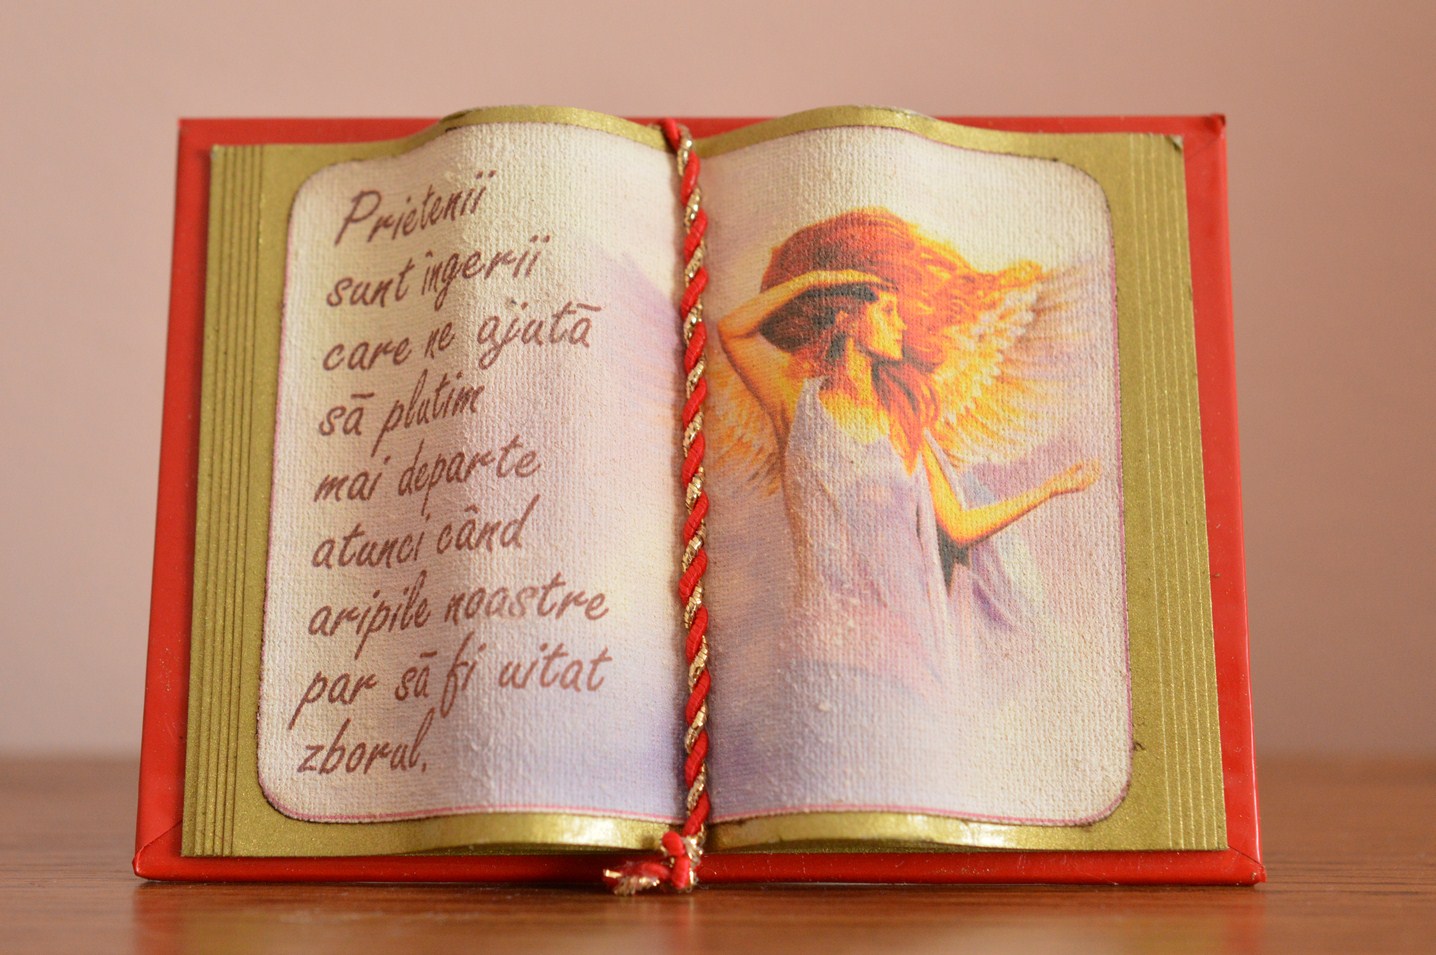 Prietenii
sunt îngerii
care ne ajută
să plutim
mai departe
atunci când
aripile noastre
par să fi uitat
zborul.